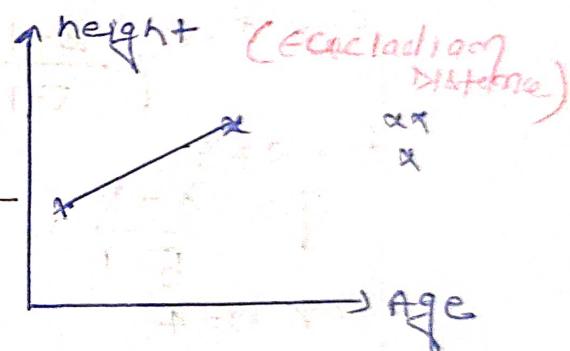 height
(Eucladian
Distance)
xx
x
Age